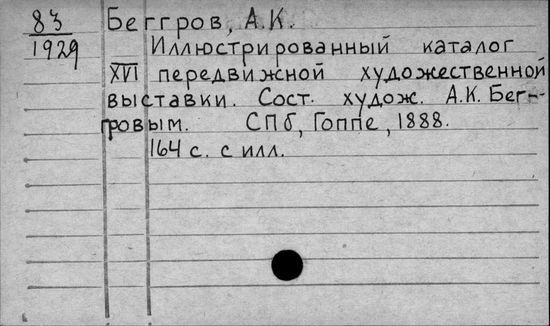 83 Беггров, А.К.
1929 Иллюстрированный каталог
XVI передвижной художественной
выставки. Сост. худож. А.К. Бег-
гровым. СПб, Гоппе, 1888.
164 с. с илл.